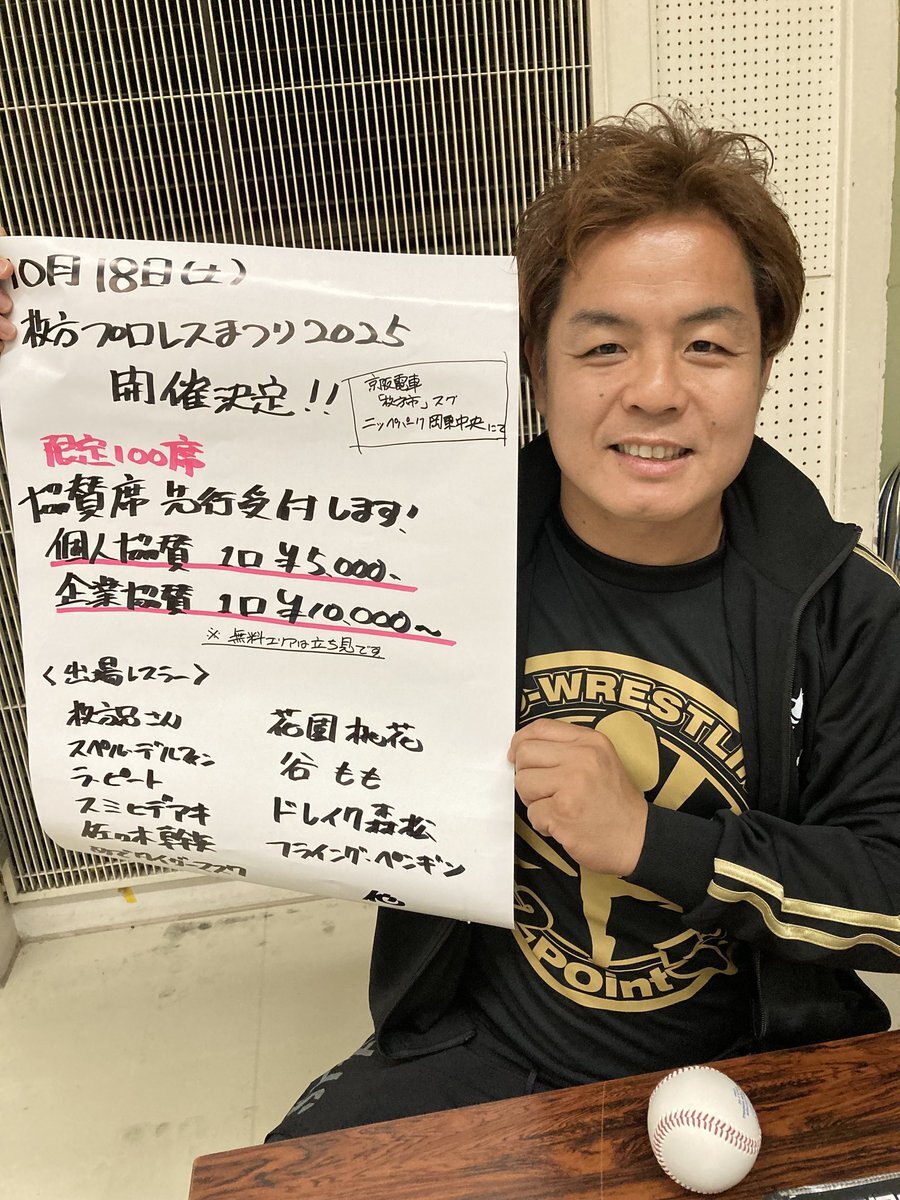 10月18日(土)
枚方プロレスまつり2025
開催決定!!
京阪電車
「枚方市」スグ
ニッペパーク岡東中央にて
限定100席
協賛席 先行受付します!
個人協賛 1口 ¥5,000~
企業協賛 1口 ¥10,000~
※ 無料エリアは立ち見です
<出場レスラー>
枚方呂さん 花園桃花
スペル・デルフィン 谷もも
ラ・ピート ドレイク森松
スミヒデアキ フライング・ペンギン
佐々木幹矢
タイガーマスク
他
O-WRESTLIN
2POint